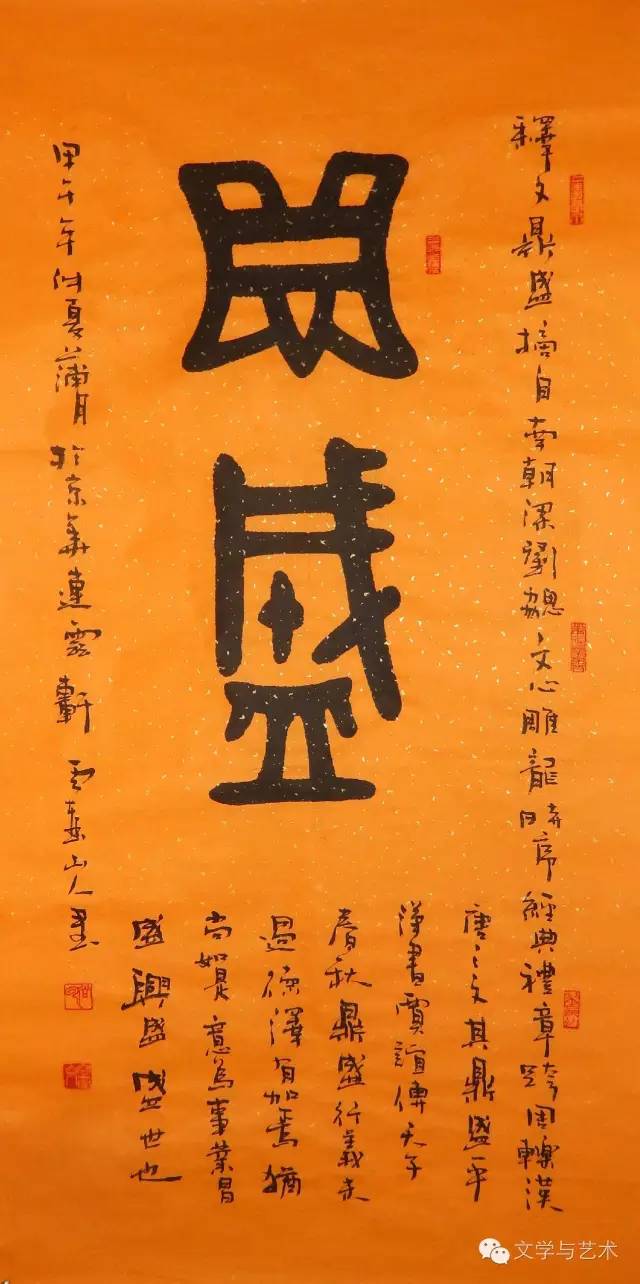 鼎盛
釋文鼎盛摘自南朝梁劉勰之文心雕龍時序經典禮章跨周轢漢
唐之文其鼎盛乎
漢書賈誼傳天子
春秋鼎盛行義未
過德澤有加焉猶
尚如是意為事業昌
盛興盛盛世也
甲午年仲夏蒲月於京華蓮雲軒 山人
文学与艺术